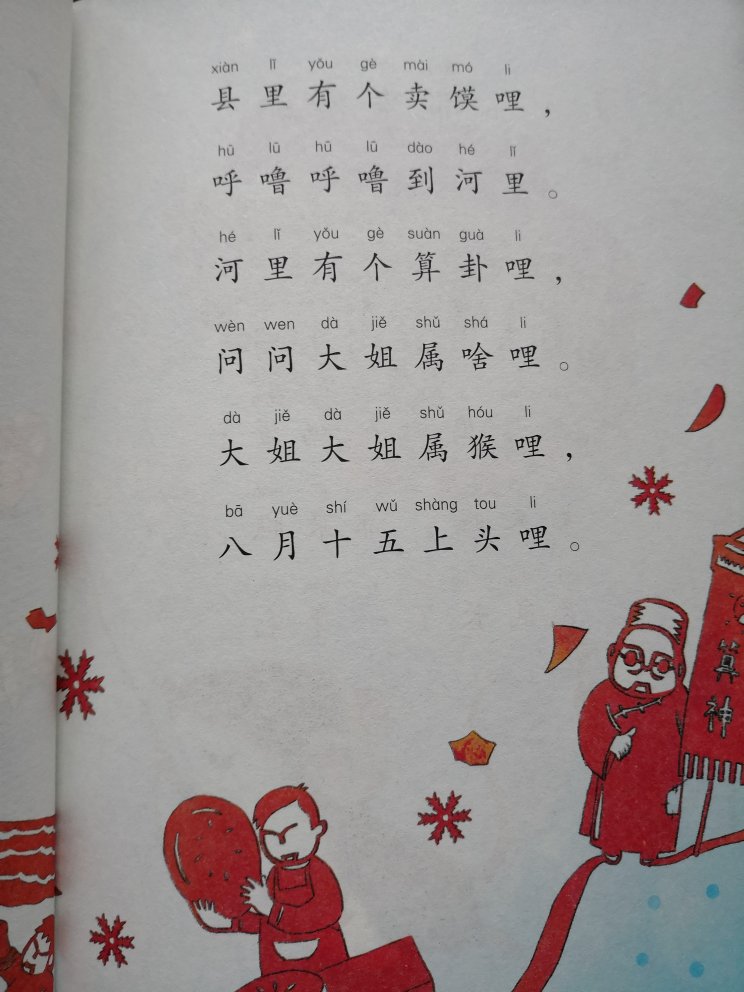 xiàn lǐ yǒu gè mài mó li
县里有个卖馍哩，
hū lū hū lū dào hé lǐ
呼噜呼噜到河里。
hé lǐ yǒu gè suàn guà li
河里有个算卦哩，
wèn wen dà jiě shǔ shá li
问问大姐属啥哩。
dà jiě dà jiě shǔ hóu li
大姐大姐属猴哩，
bā yuè shí wǔ shàng tou li
八月十五上头哩。
算神